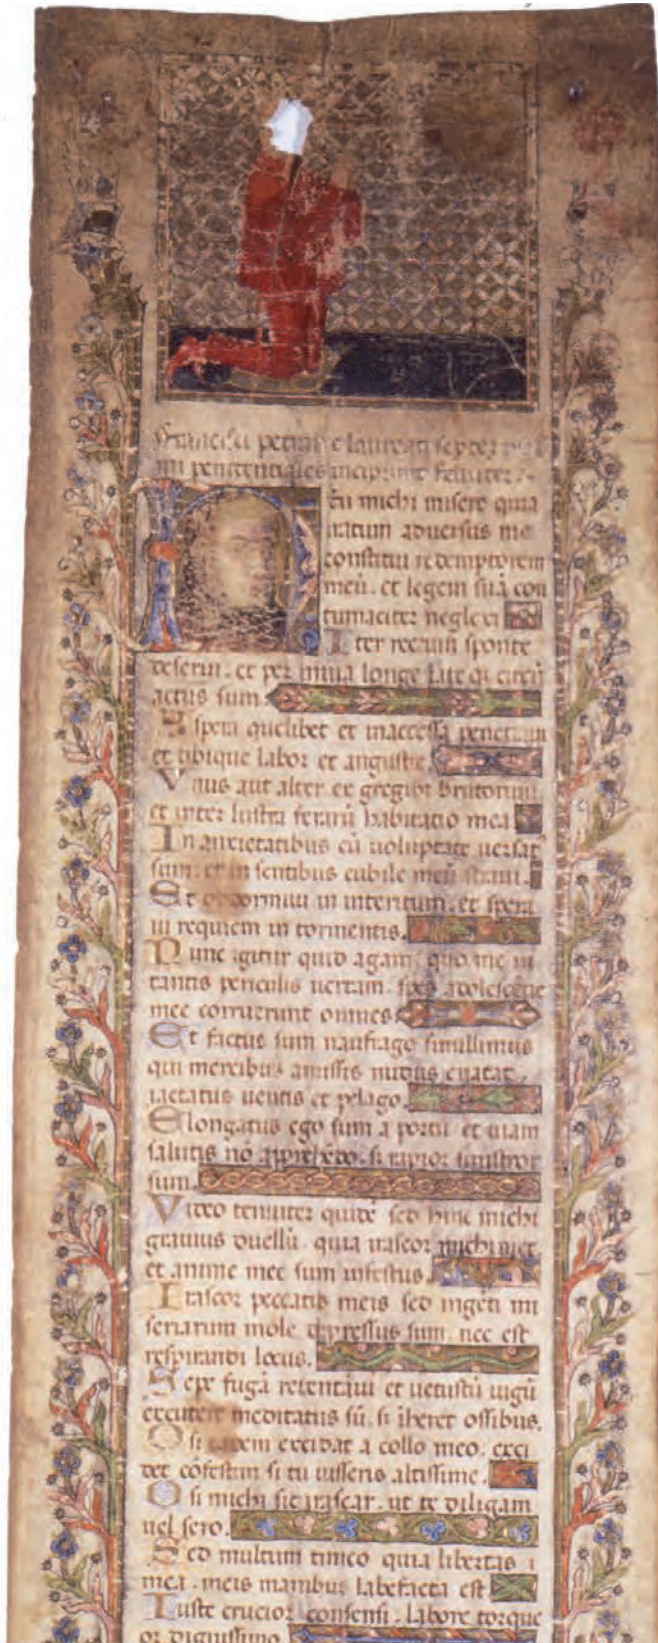 Francisci petrarce laureati septez psal
mi penitentiales incipiunt feliciter.
eu michi misero quia
iratum aduersus me
constitui redemptorem
meū. et legem suā con
tumaciter neglexi
Iter rectum sponte
deserui. et per inuia longe lateqz circū
actus sum.
Aspera quelibet et inaccessa penetraui
et ubique labor et angustie
Vnus aut alter ex gregibz brutorum
et inter lustra ferarū habitatio mea
In anxietatibus cū uoluptate uersat
sum. et in sentibus cubile meū straui.
Et obdormiui in interitum. et spera
ui requiem in tormentis.
Nunc igitur quid agam. quo me in
tantis periculis uertam. spes adolescētie
mee corruerunt omnes
Et factus sum naufrago simillimus
qui mercibus amissis nudus enatat.
iactatus uentis et pelago.
Elongatus ego sum a portu et uiam
salutis nō apprehēdo. s; rapior sinistror
sum.
Video tenuiter quidē sed hinc michi
grauius duellū. quia irascor michimet
et anime mee sum infestus.
Irascor peccatis meis sed ingēti mi
seriarum mole depressus sum. nec est
respirandi locus.
Sepe fugā retentaui et uetustū iugū
excutere meditatus sū. s; īheret ossibus.
O si tandem excidat a collo meo. exci
det cōfestim si tu iusseris altissime.
O si michi sic irascar. ut te diligam
uel sero.
Sed multum timeo quia libertas
mea. meis manibus labefacta est
Iuste crucior consensi. labore torque
or dignissimo